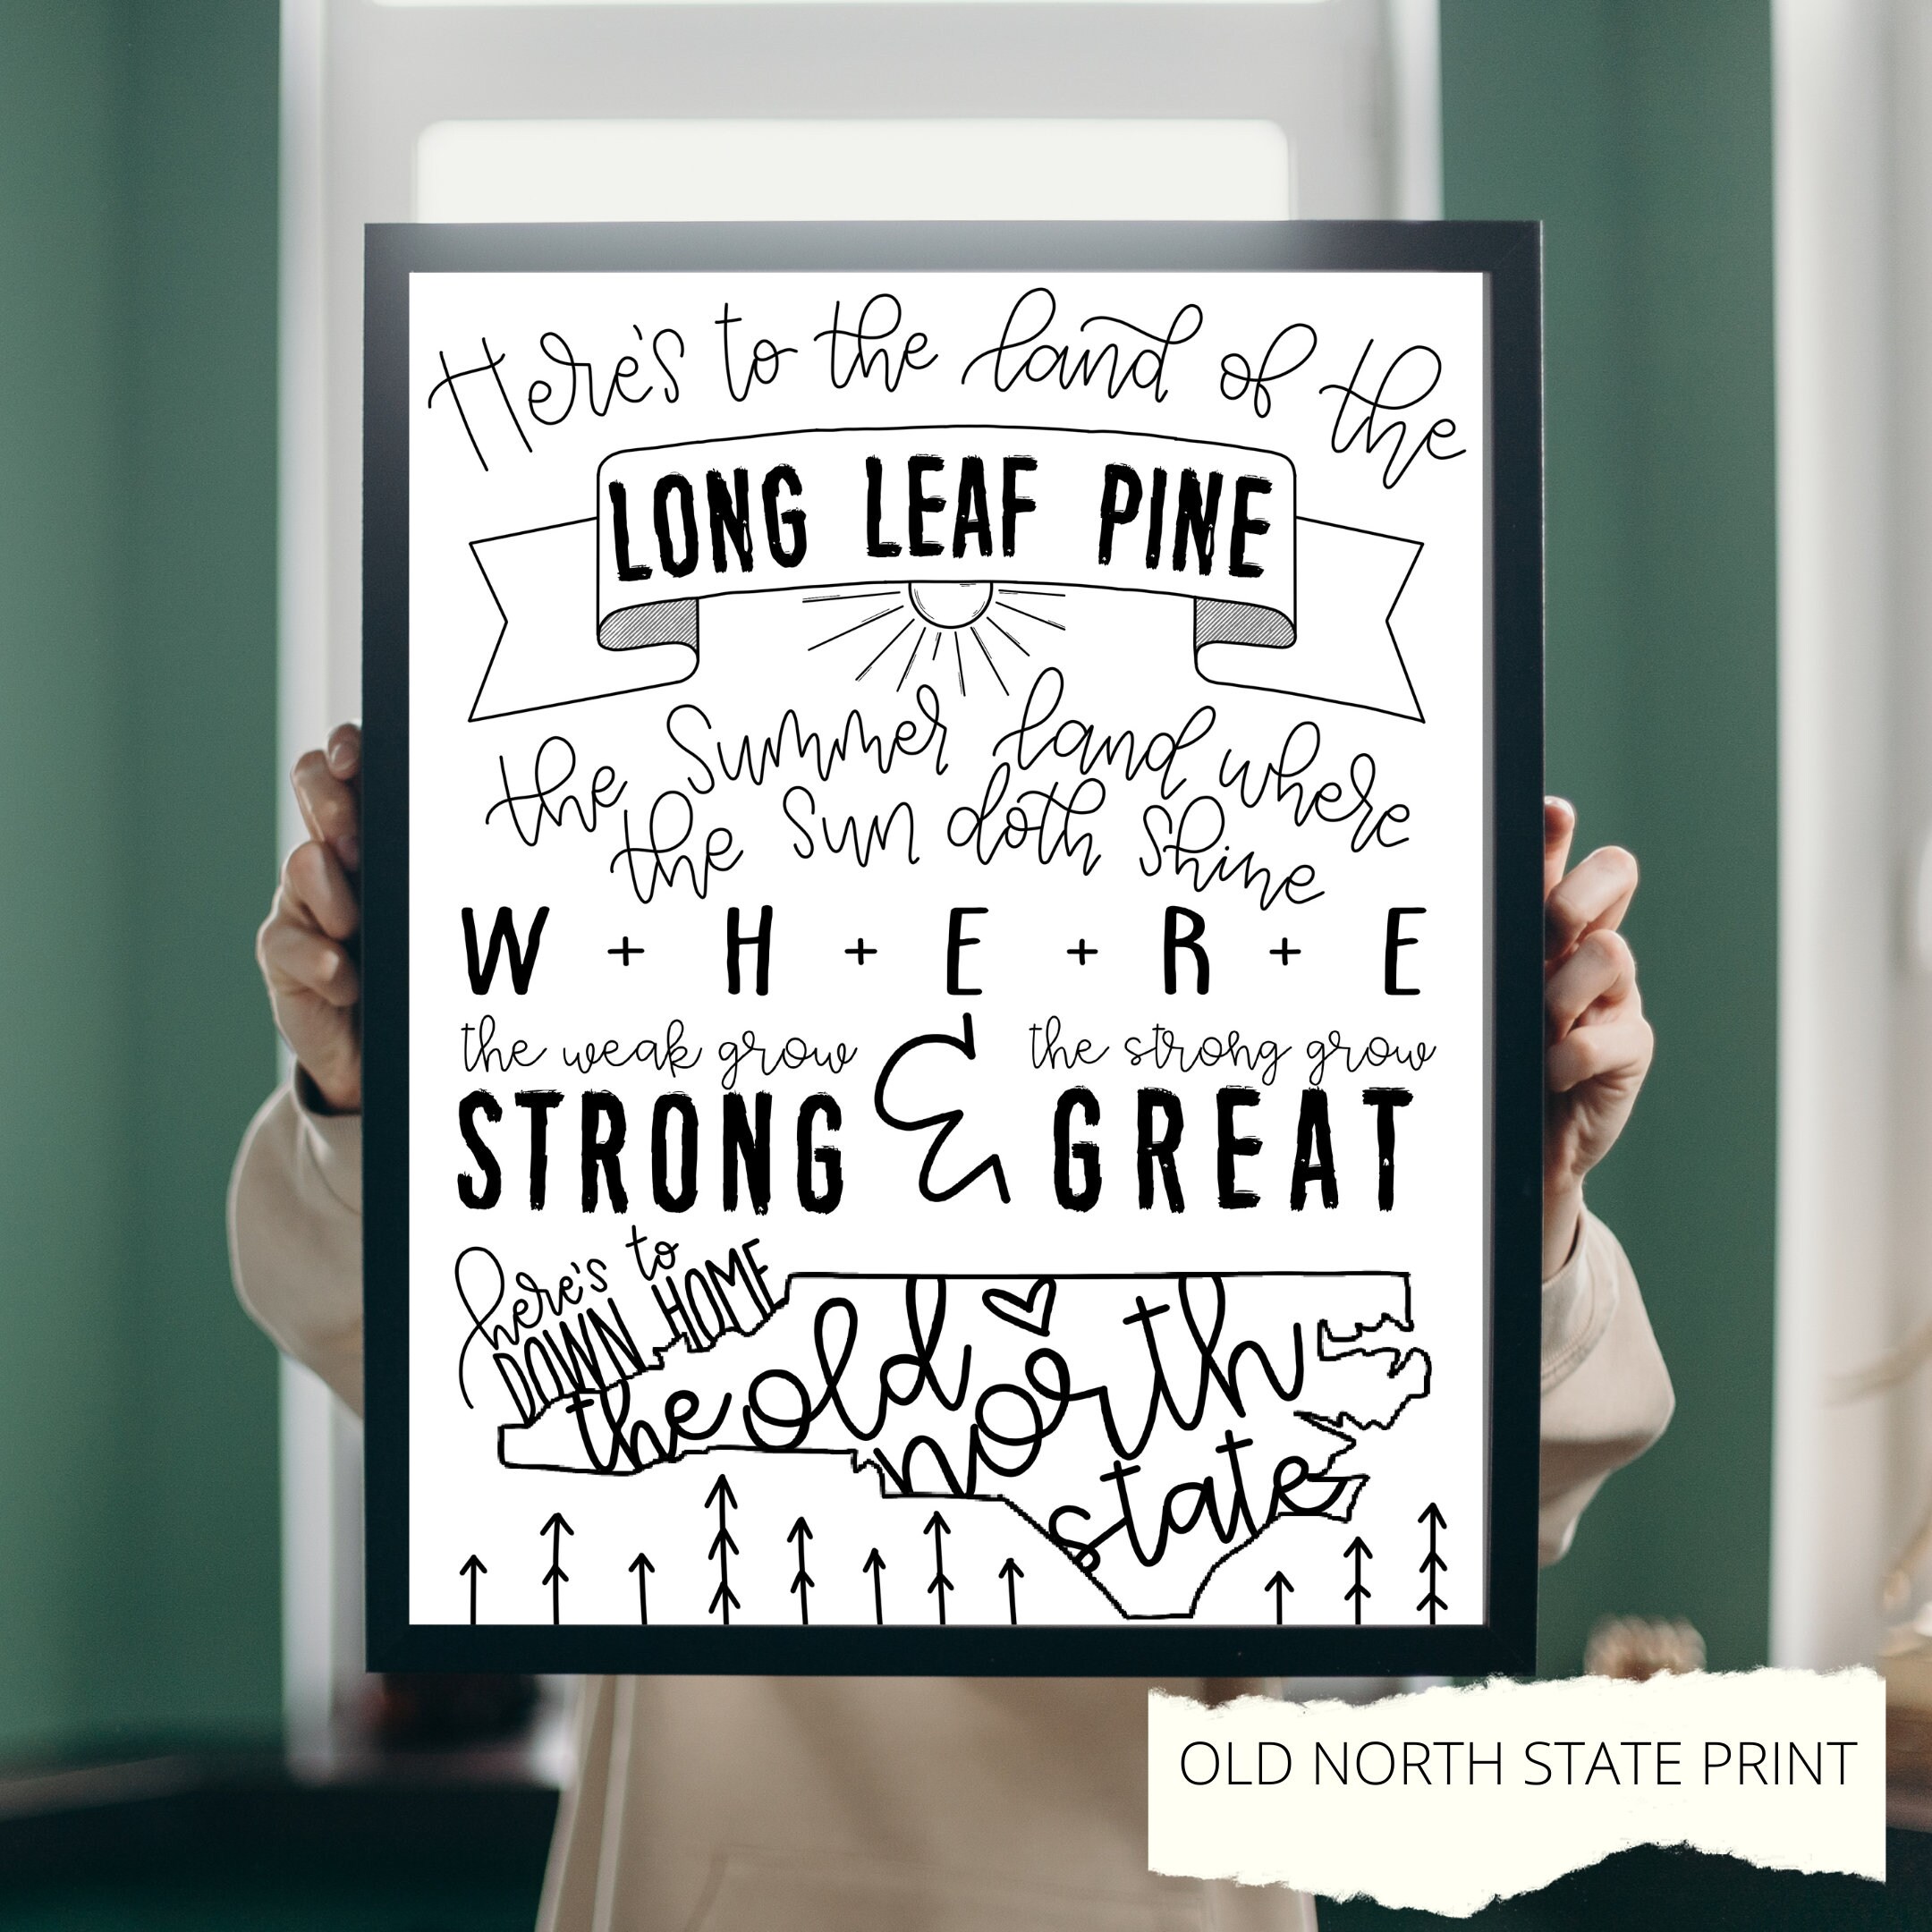 Here's to the land of the
LONG LEAF PINE
the Summer land where
the Sun doth Shine
W + H + E + R + E
the weak grow
STRONG
&
the strong grow
GREAT
here's to
DOWN HOME
the old north
state
OLD NORTH STATE PRINT